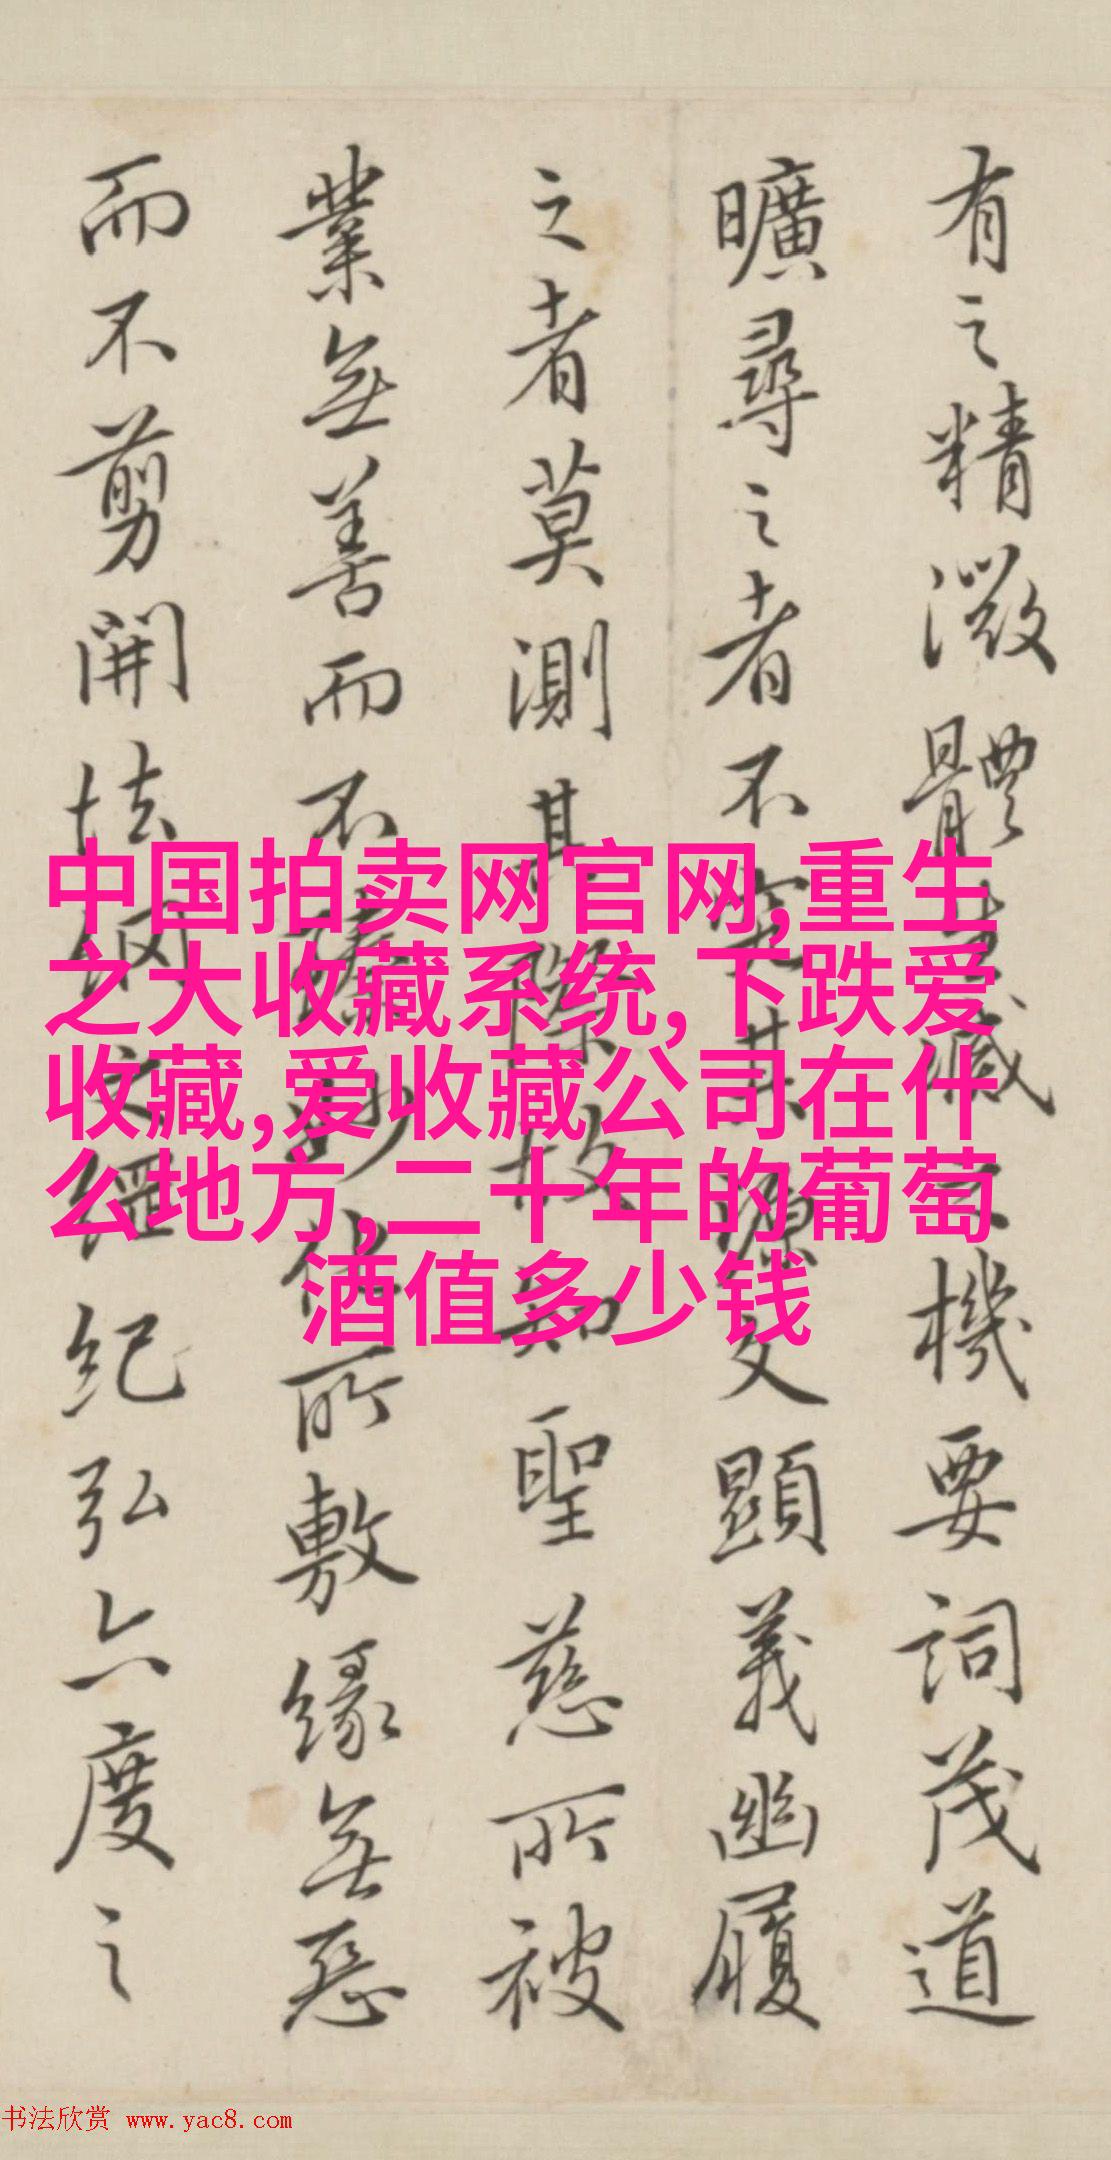 有之精微體生滅之機要詞茂道
曠尋之者不究其源文顯義幽履
之者莫測其際故知聖慈所被
業無善而不臻妙化所敷緣無惡
而不剪開法網之綱紀弘六度之
中国拍卖网官网,重生
之大收藏系统,下跌爱
收藏,爱收藏公司在什
么地方,二十年的葡萄
酒值多少钱
书法欣赏 www.yac8.com